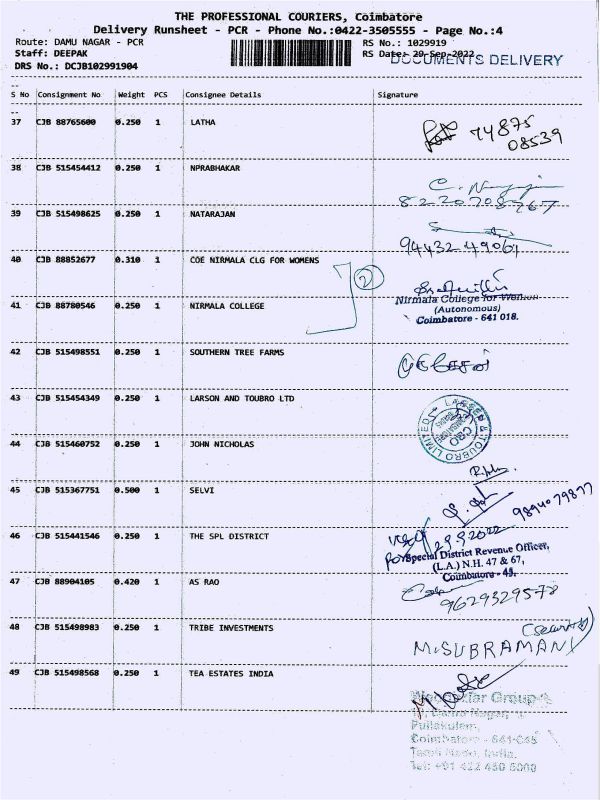 THE PROFESSIONAL COURIERS, Coimbatore
Delivery Runsheet - PCR - Phone No.:0422-3505555 - Page No.:4
Route: DAMU NAGAR - PCR
RS No.: 1029919
Staff: DEEPAK
RS Date: 29-Sep-2022
DOCUMENTS DELIVERY
DRS No.: DCJB102991904
S No Consignment No Weight PCS Consignee Details Signature
37 CJB 88765600 0.250 1 LATHA
74875
08539
38 CJB 515454412 0.250 1 NPRABHAKAR
8220708767
39 CJB 515498625 0.250 1 NATARAJAN
94432 49061
40 CJB 88852677 0.310 1 COE NIRMALA CLG FOR WOMENS
2
Nirmala College for Women
(Autonomous)
Coimbatore - 641 018.
41 CJB 88780546 0.250 1 NIRMALA COLLEGE
42 CJB 515498551 0.250 1 SOUTHERN TREE FARMS
43 CJB 515454349 0.250 1 LARSON AND TOUBRO LTD
LARSEN & TOUBRO LIMITED
44 CJB 515460752 0.250 1 JOHN NICHOLAS
45 CJB 515367751 0.500 1 SELVI
9894079877
46 CJB 515441546 0.250 1 THE SPL DISTRICT
29.9.2022
For Special District Revenue Officer,
(L.A.) N.H. 47 & 67,
Coimbatore - 45.
47 CJB 88904105 0.420 1 AS RAO
9629329578
48 CJB 515498983 0.250 1 TRIBE INVESTMENTS
(Security)
M.SUBRAMANY
49 CJB 515498568 0.250 1 TEA ESTATES INDIA
Group
Pullakulam,
Coimbatore - 641-045
Tamil Nadu, India.
Tel: +91 422 450 5000